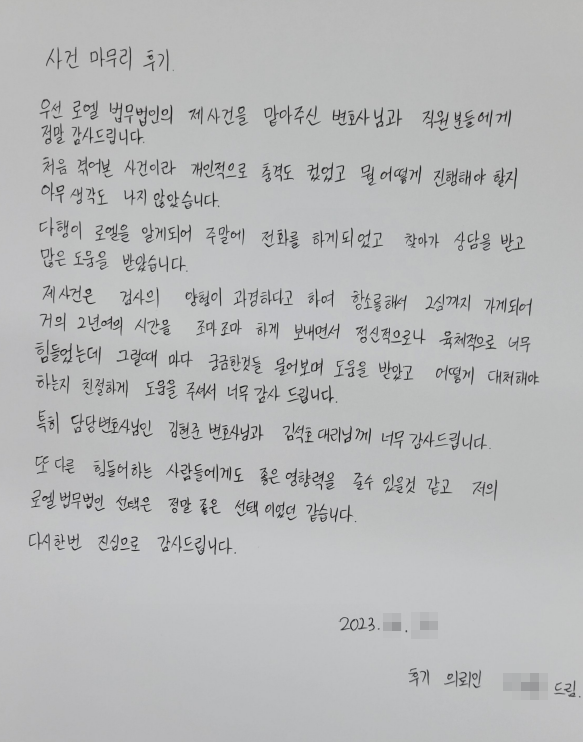 사건 마무리 후기.
우선 로엘 법무법인의 제사건을 맡아주신 변호사님과 직원분들에게
정말 감사드립니다.
처음 겪어본 사건이라 개인적으로 충격도 컸었고 뭘 어떻게 진행해야 할지
아무 생각도 나지 않았습니다.
다행이 로엘을 알게되어 주말에 전화를 하게되었고 찾아가 상담을 받고
많은 도움을 받았습니다.
제사건은 검사의 양형이 과경하다고 하여 항소를해서 2심까지 가게되어
거의 2년여의 시간을 조마조마 하게 보내면서 정신적으로나 육체적으로 너무
힘들었는데 그럴때 마다 궁금한것들 물어보며 도움을 받았고 어떻게 대처해야
하는지 친절하게 도움을 주셔서 너무 감사 드립니다.
특히 담당변호사님인 김현준 변호사님과 김석호 대리님께 너무 감사드립니다.
또 다른 힘들어하는 사람들에게도 좋은 영향력을 줄수 있을것 같고 저의
로엘 법무법인 선택은 정말 좋은 선택 이었던 같습니다.
다시한번 진심으로 감사드립니다.
2023. .
후기 의뢰인 드림.